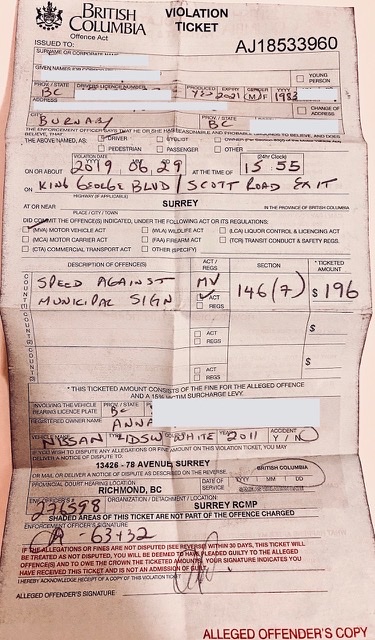 BRITISH COLUMBIA
Offence Act
VIOLATION TICKET
ISSUED TO:
AJ18533960
SURNAME OR CORPORATE NAME
GIVEN NAMES
YOUNG PERSON
PROV / STATE DRIVERS LICENCE NUMBER PRODUCED EXPIRY GENDER
BC 2021 M F 1983
ADDRESS CHANGE OF ADDRESS
CITY PROV / STATE
BURNABY BC
THE ENFORCEMENT OFFICER SAYS THAT HE OR SHE HAS REASONABLE AND PROBABLE GROUNDS TO BELIEVE, AND DOES
BELIEVE, THAT
THE ABOVE NAMED, AS: DRIVER CYCLIST OWNER
PEDESTRIAN PASSENGER OTHER
VIOLATION DATE (24hr Clock)
ON OR ABOUT 2019 06 29 AT THE TIME OF 15 55
ON KING GEORGE BLVD / SCOTT ROAD EXIT
HIGHWAY (IF APPLICABLE)
AT OR NEAR SURREY IN THE PROVINCE OF BRITISH COLUMBIA
PLACE / CITY / TOWN
DID COMMIT THE OFFENCE(S) INDICATED, UNDER THE FOLLOWING ACT OR ITS REGULATIONS:
(MVA) MOTOR VEHICLE ACT (WLA) WILDLIFE ACT (LCA) LIQUOR CONTROL & LICENCING ACT
(MCA) MOTOR CARRIER ACT (FAA) FIREARM ACT (TCR) TRANSIT CONDUCT & SAFETY REGS.
(CTA) COMMERCIAL TRANSPORT ACT OTHER (SPECIFY)
DESCRIPTION OF OFFENCE(S) ACT / REGS SECTION * TICKETED AMOUNT
COUNT (1) SPEED AGAINST MUNICIPAL SIGN MV ACT REGS 146(7) $ 196
COUNT (2) ACT REGS $
COUNT (3) ACT REGS $
* THIS TICKETED AMOUNT CONSISTS OF THE FINE FOR THE ALLEGED OFFENCE
AND A 15% VICTIM SURCHARGE LEVY.
INVOLVING THE VEHICLE BEARING LICENCE PLATE PROV / STATE
BC
REGISTERED OWNER NAME
ANNA
VEHICLE MAKE ACCIDENT
NISSAN WHITE 2011 Y / N
IF YOU WISH TO DISPUTE ANY ALLEGATIONS OR FINE AMOUNT ON THIS VIOLATION TICKET, YOU MAY
DELIVER A NOTICE OF DISPUTE TO:
13426 - 78 AVENUE SURREY BRITISH COLUMBIA
OR MAIL OR DELIVER A NOTICE OF DISPUTE AS DESCRIBED ON THE REVERSE.
PROVINCIAL COURT HEARING LOCATION DATE OF SERVICE YYYY MM DD
RICHMOND, BC
ENFORCEMENT OFFICER # ORGANIZATION / DETACHMENT / LOCATION:
SURREY RCMP
SHADED AREAS OF THIS TICKET ARE NOT PART OF THE OFFENCE CHARGED
ENFORCEMENT OFFICER'S SIGNATURE
IF THE ALLEGATIONS OR FINES ARE NOT DISPUTED (SEE REVERSE) WITHIN 30 DAYS, THIS TICKET WILL
BE TREATED AS NOT DISPUTED, YOU WILL BE DEEMED TO HAVE PLEADED GUILTY TO THE ALLEGED
OFFENCE(S) AND TO OWE THE CROWN THE TICKETED AMOUNT. YOUR SIGNATURE INDICATES YOU
HAVE RECEIVED THIS TICKET AND IS NOT AN ADMISSION OF GUILT.
I HEREBY ACKNOWLEDGE RECEIPT OF A COPY OF THIS VIOLATION TICKET
ALLEGED OFFENDER'S SIGNATURE:
ALLEGED OFFENDER'S COPY